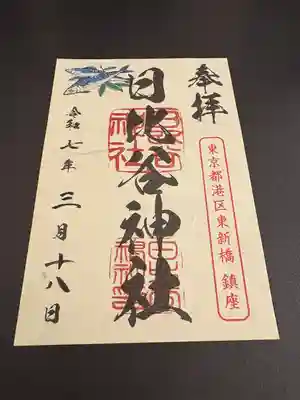 奉拝
東京都港区東新橋 鎮座
日比谷神社
令和七年 三月十八日